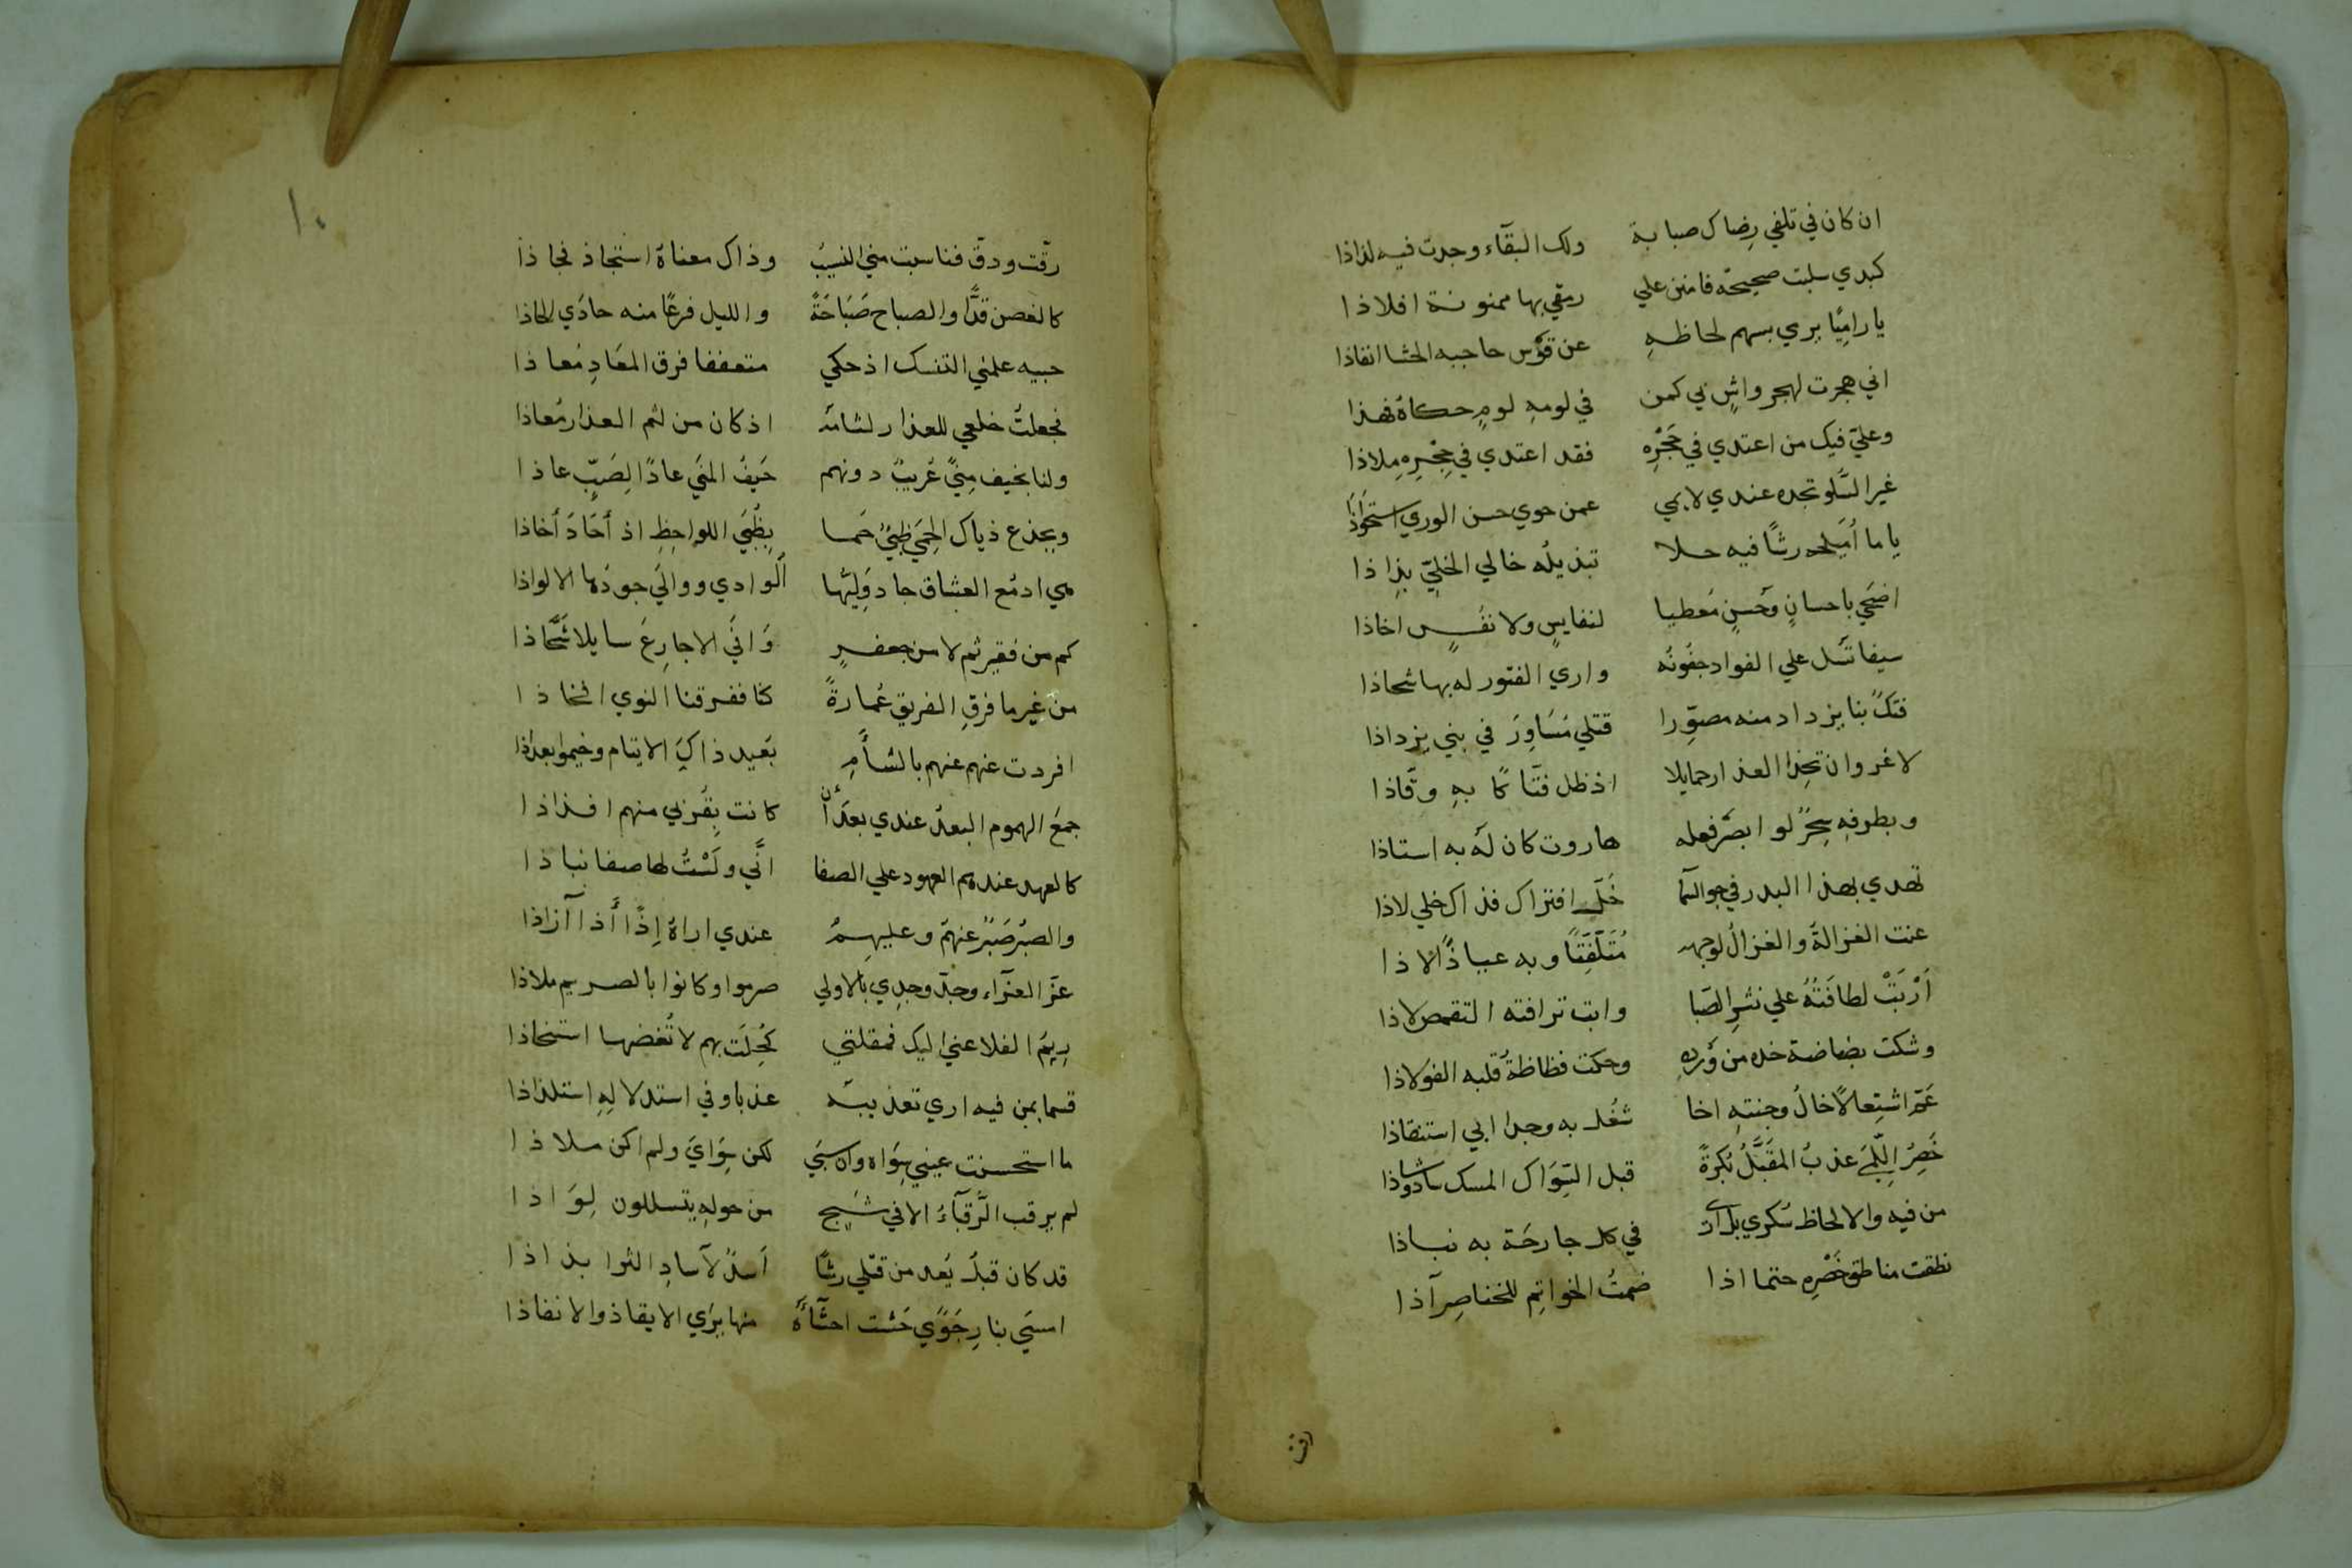 ان كان في تلفي رضاك صبابة ولك البقآء وجدت فيه لذاذا
كبدي سلبت صحيحة فامنن علي رمقي بها ممنونة افلاذا
يا رامِيًا يرمي بسهم لحاظهِ عن قوْس حاجبه الحشا انفاذا
اني هجرت لهجر واشٍ بي كمن في لومهِ لومٍ حكاهُ فهذا
وعليّ فيك من اعتدي في حَجْرِه فقد اعتدي في حِجْرِهِ مِلاذا
غير السَّلو تجده عندي لايمي عمن حوي حسن الوري استحواذا
ياما أُمَيلحه رشًا فيه حلا تبذيلُه حالي الخَليّ بذاذا
اضحَي باحسانٍ وحُسنٍ مُعطيا لنفايسٍ ولا نفُسٍ اخاذا
سيفا تسَل علي الفواد جفُونُه واري الفتور له بها شحاذا
فتكً بنا يزداد منه مصوِّرا قتلي مَسَاوِرَ في بني يزداذا
لا غروان تخِذا العذار حمايلا اذ ظل فتَّاكًا بهِ وقَّاذا
وبطرفهِ سِحرٌ لو ابصَر فعله هاروت كان لَه به استاذا
تهدي بهذا البدر في جو السما خَلِّ افتراك فذاك خلي لاذا
عنت الغزالة والغزالُ لوجهه مُتَلَفِّتًا وبه عياذًا لاذا
اَرْبَتْ لطافَتُهُ علي نشرِ الصَبا وابت ترافته التقمص لاذا
وشكت بضاضة خده من وَردِهِ وحكت فظاظةُ قلبه الفولاذا
عَمَّ اشتِعالًا خالُ وجنتهِ اخا شُغُل به وجدا ابي استنقاذا
خَصِرُ اللِّمَي عذبُ المقَبَّلُ بُكرةً قبل السِّوَاك المسك سادوشاذا
من فيه والالحاظ سُكري بل اري في كل جارحَة به نباذا
نطقت مناطق خَصْرِهِ حتما اذا ضمتُ الخواتِم للخناصِر آذا
رقت
١٠
رقّت ودقّ فناسبت مني النسِيبُ وذاك معناهُ استجاذ فحاذا
كالغصن قدًّا والصباح صَبَاحَةً والليل فرعًا منه حاذَي الحاذا
حبيه علمني التنسك اذ حكي متعففا فرق المعَادِ مُعاذا
فجعلتُ خلعي للعذار لثامَه اذ كان من لثم العذار مُعاذا
ولنا بخيف مِنيً عُريبٌ دونهم حَيفُ المنَي عادًا لِصَبِّ عاذا
وبجذع ذياك الحِمَي ظبيٌ حَما بِظُبَي اللواحِظِ اذ أَحَاذَ أخاذا
هي ادمُع العشاق جاد وَلِيّها الوادي ووالَي جودُها الالواذا
كم من فقير ثم لا من جعفرٍ وَافَي الاجارِعَ سايلا شَحَّاذا
من غيرما فرقِ الفريق عُمارةً كنا ففرقنا النوي افخاذا
افردت عنهم عنهم بالشأمِ بَعيد ذاك الايتام وخيموا بغداذا
جمعَ الهموم البعدُ عندي بعدَ أن كانت بِقُربي منهم افذاذا
كالعهد عندهم العهود علي الصفا انَّي ولَسْتُ لها صفا نباذا
والصبرُ صَبْرٌ عنهمُ وعليهِمُ عندي اراهُ إِذًا أَذا آزاذا
عَزّ العزآء وجدّ وجدِي بالاولي صرموا وكانوا بالصريم ملاذا
رِيمُ الفلا عني اليك فمقلتي كُحِلَت بهم لا تُغضها استخاذا
قسما بمن فيه اري تعذيبَه عذبا وفي استدلالِهِ استلذاذا
ما استحسنت عيني سِوَاه وان سَبَي لكن سِوَايَ ولم اكن ملاذا
لم يرقب الرُّقبآءُ الا في شَجٍ من حولهِ يتسللون لِوَاذا
قد كان قبلُ يُعد من قتلي رشًا اَسدٌ لآسادِ الشرا بذاذا
امسَي بنارِ جَوًي حَشت احشَآءهُ منها يرَي الايقاذ والانفاذا